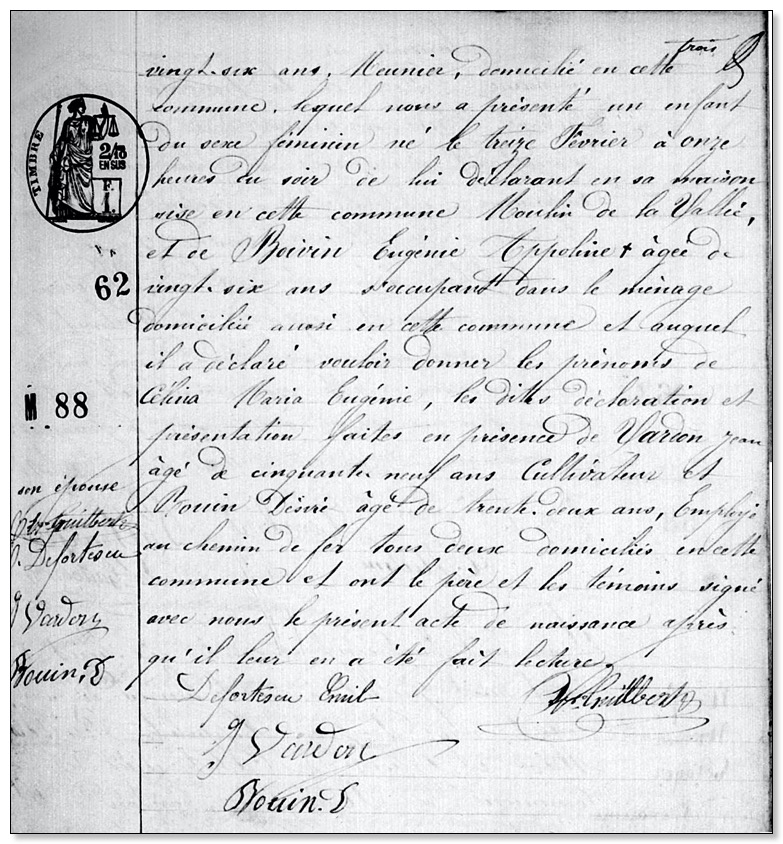 trois
vingt-six ans, Meunier, domicilié en cette
commune, lequel nous a présenté un enfant
du sexe féminin né le treize Février à onze
heures du soir de lui déclarant en sa maison
sise en cette commune Moulin de la Vallée,
et de Boivin Eugénie Appoline + âgée de
vingt-six ans s'occupant dans le ménage
domiciliée aussi en cette commune et auquel
il a déclaré vouloir donner les prénoms de
Célina Maria Eugénie, les dites déclaration et
présentation faites en présence de Vardon Jean
âgé de cinquante neuf ans Cultivateur et
Bouin Désiré âgé de trente-deux ans, Employé
au chemin de fer tous deux domiciliés en cette
commune et ont le père et les témoins signé
avec nous le présent acte de naissance après
qu'il leur en a été fait lecture.
Defortescu Emile
Guilbert
J Vardon
Bouin. D
TIMBRE
2/10
EN SUS
F.
1.
62
M 88
son épouse
Guilbert
Defortescu
J Vardon
Bouin, D